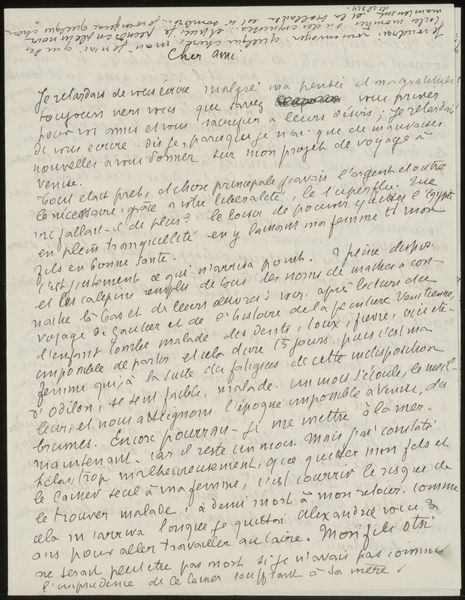 Je voudrais vous envoyer quelque chose, mais je n'ai que des
Cher ami
Je retardais de vous ecrire malgré ma pensée et ma gratitude
toujours vers vous que savez vous priver
pour vos amis et vous sacrifier a leurs desirs; Je retardais
de vous ecrire, dis-je, parceque je n'ai que de mauvaises
nouvelles a vous donner sur mon projet de voyage à
Venise.
Tout etait prêt, et chose principale j'avais l'argent et outre
le nécessaire, grâce a votre liberalité, le superflu. Que
me fallait-il de plus? le loisir de pouvoir quitter l'Egypte
en plein tranquillité en y laissant ma femme et mon
fils en bonne santé.
C'est justement ce qui n'arriva point. A peine
et les calepins remplis de tous les noms de maîtres a con-
naître là-bas et de leurs œuvres à voir, après lecture du
voyage de Gautier et de l'histoire de la peinture Vénitienne,
l'enfant tombe malade des dents, toux, fièvre,
impossible de partir et cela dure 15 jours, puis c'est ma
femme qui, à la suite des fatigues de cette indisposition
d'Odilon, se sent faible, malade. Un mois s'écoule, le meil-
leur, et nous atteignons l'époque impossible a Venise, des
brumes. Encore pourrais-je me mettre à la mer
maintenant car il reste un mois. Mais j'ai constaté
hélas, trop malheureusement, que quitter mon fils et
le laisser seul à ma femme, c'est courir le risque de
le trouver malade, à demi mort à mon retour, comme
cela m'arriva lorsque je quittai Alexandrie voici 2
ans pour aller travailler au Caire. Mon fils
ne serait peut etre pas mort si je n'avais pas commis
l'imprudence de le laisser souffrant à sa mère